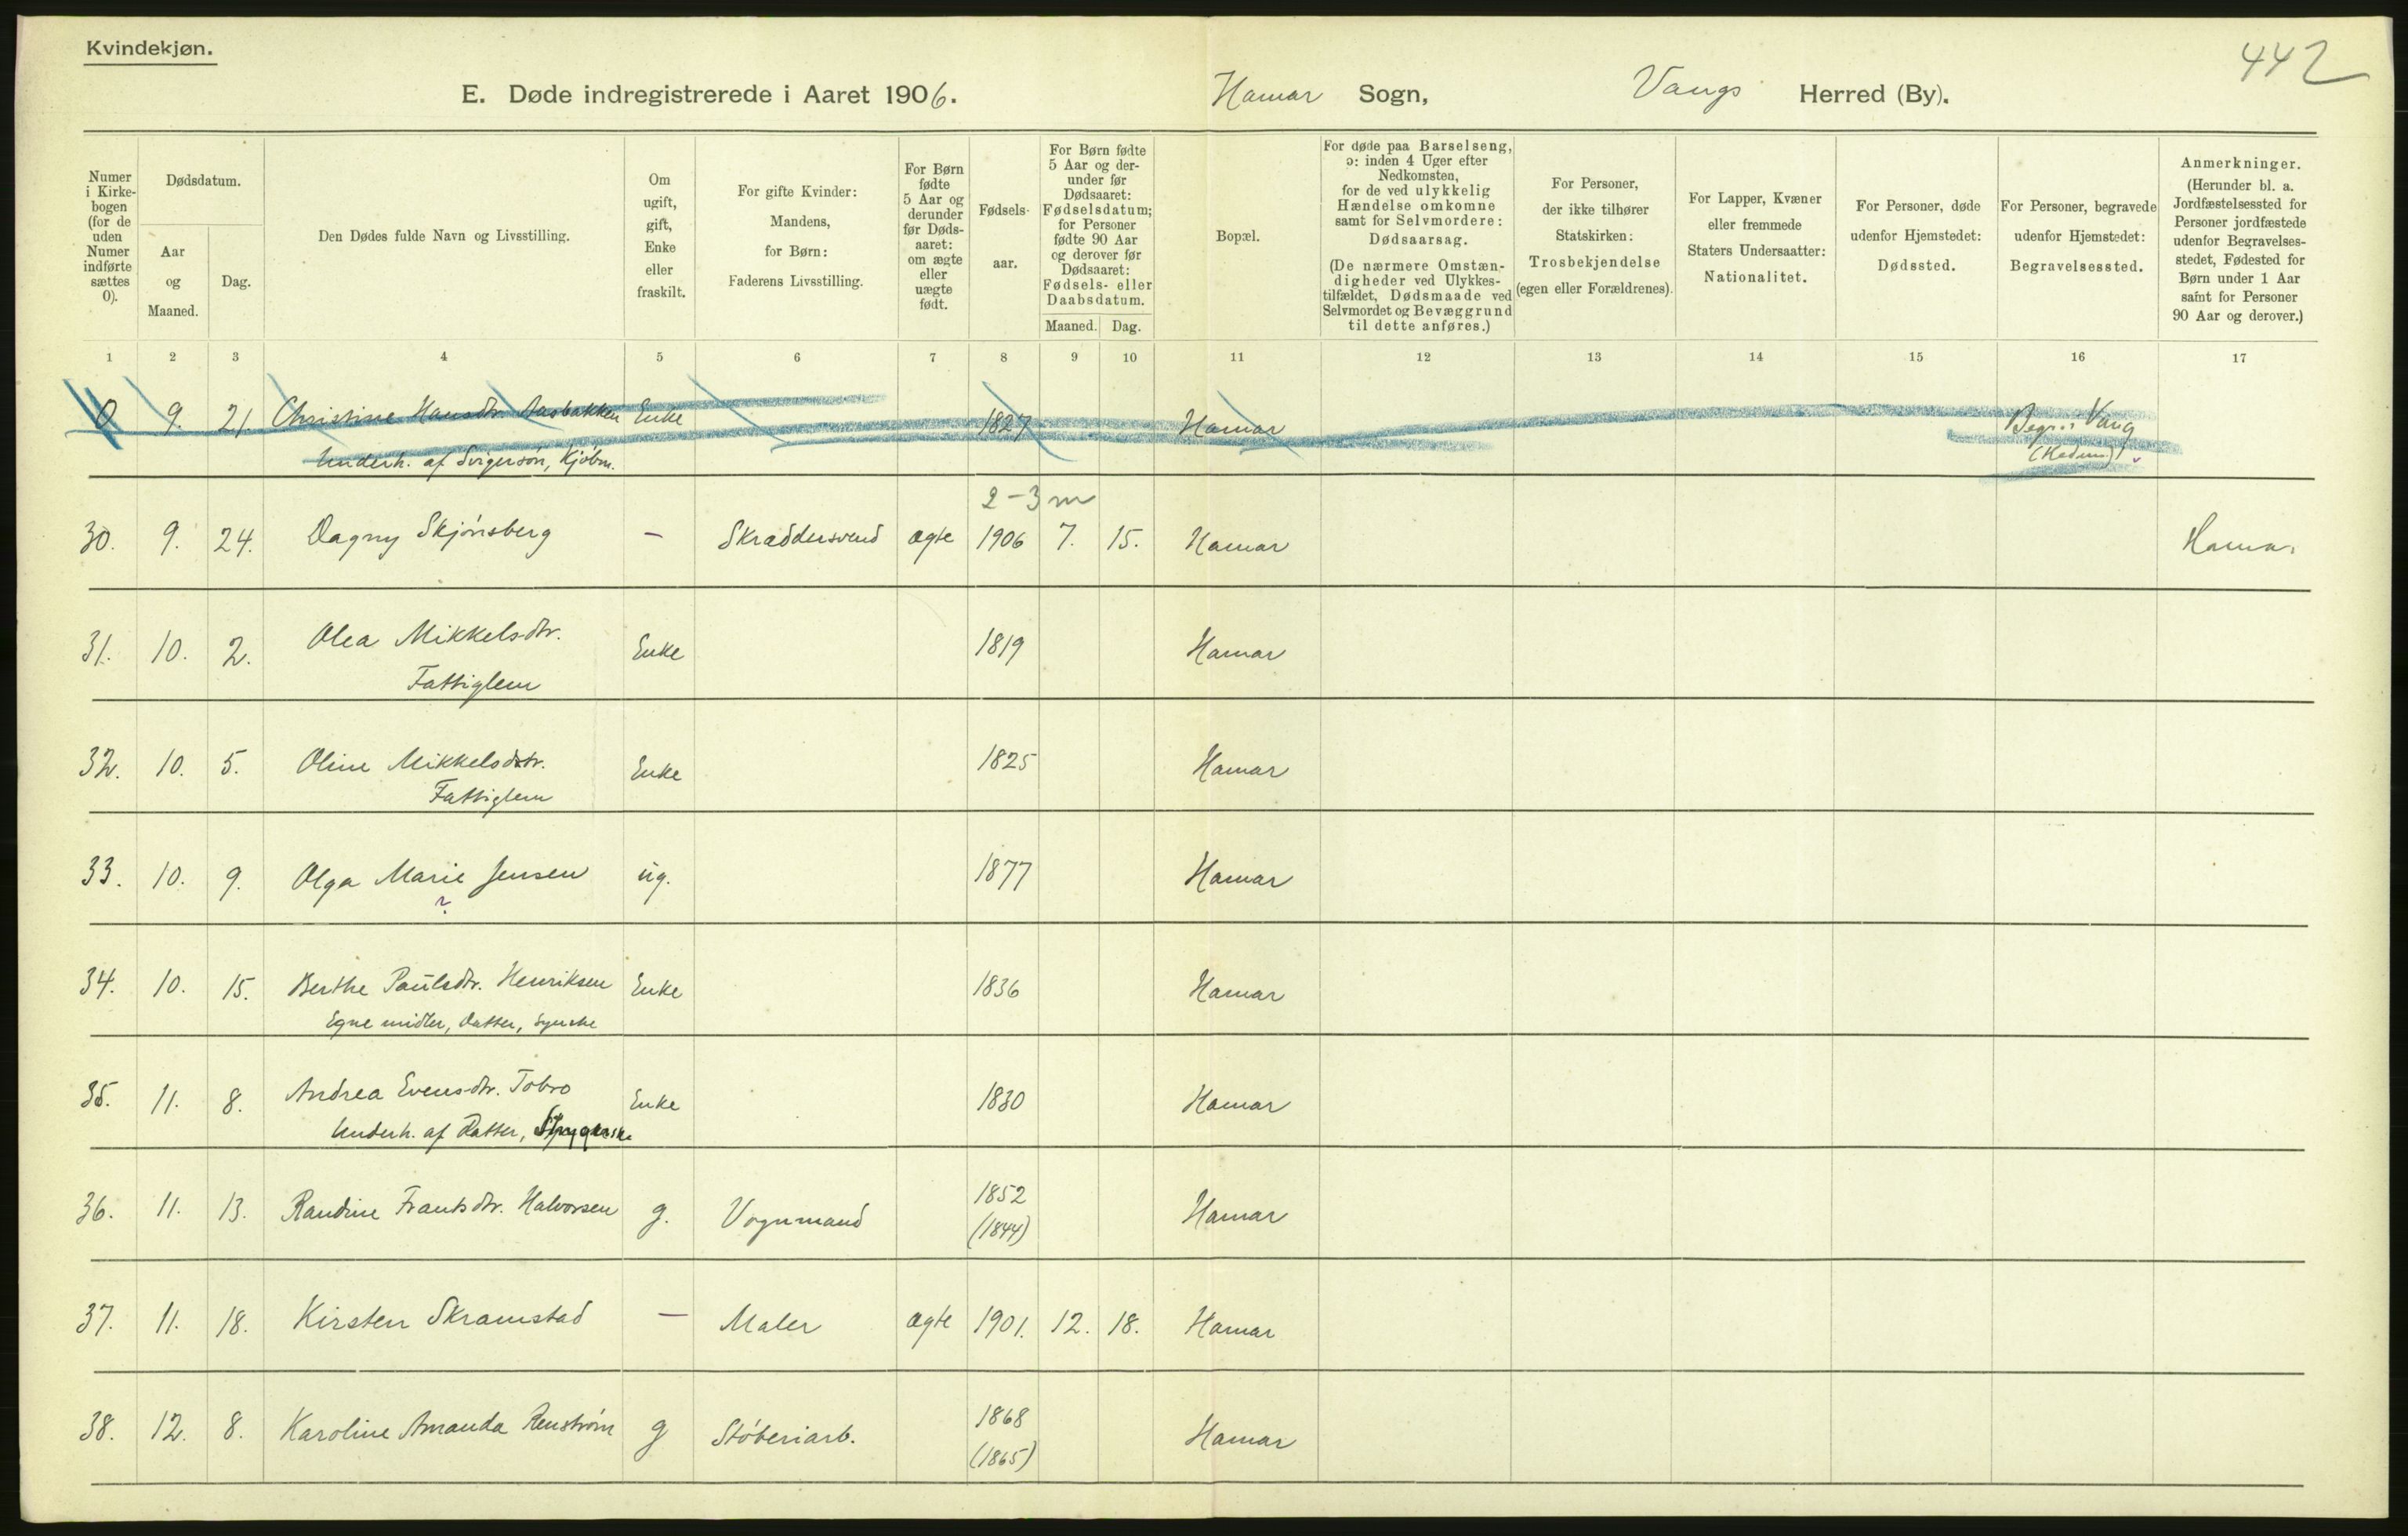 Kvindekjøn.
442
E. Døde indregistrerede i Aaret 1906. Hamar Sogn, Vangs Herred (By).
Numer i Kirkebogen (for de uden Numer indførte sættes 0).
Dødsdatum.
Aar og Maaned.
Dag.
Den Dødes fulde Navn og Livsstilling.
Om ugift, gift, Enke eller fraskilt.
For gifte Kvinder: Mandens, for Børn: Faderens Livsstilling.
For Børn fødte 5 Aar og derunder før Dødsaaret: om ægte eller uægte født.
Fødselsaar.
For Børn fødte 5 Aar og derunder før Dødsaaret: Fødselsdatum; for Personer fødte 90 Aar og derover før Dødsaaret: Fødsels- eller Daabsdatum.
Maaned. Dag.
Bopæl.
For døde paa Barselseng, ɔ: inden 4 Uger efter Nedkomsten, for de ved ulykkelig Hændelse omkomne samt for Selvmordere: Dødsaarsag. (De nærmere Omstændigheder ved Ulykkestilfældet, Dødsmaade ved Selvmordet og Bevæggrund til dette anføres.)
For Personer, der ikke tilhører Statskirken: Trosbekjendelse (egen eller Forældrenes).
For Lapper, Kvæner eller fremmede Staters Undersaatter: Nationalitet.
For Personer, døde udenfor Hjemstedet: Dødssted.
For Personer, begravede udenfor Hjemstedet: Begravelsessted.
Anmerkninger. (Herunder bl. a. Jordfæstelsessted for Personer jordfæstede udenfor Begravelsesstedet, Fødested for Børn under 1 Aar samt for Personer 90 Aar og derover.)
1 2 3 4 5 6 7 8 9 10 11 12 13 14 15 16 17
0 9. 21. Christine Hansdtr. Aasbakken Enke 1827 Hamar Begr. i Vang
Underh. af Svigersøn, Kjøbm. (Hedm.)
2-3 m
30. 9. 24. Dagny Skjønsberg — Skræddersvend ægte 1906 7. 15. Hamar Hamar
31. 10. 2. Olea Mikkelsdtr. Enke 1819 Hamar
Fattiglem
32. 10. 5. Oline Mikkelsdtr. Enke 1825 Hamar
Fattiglem
33. 10. 9. Olga Marie Jensen ug. 1877 Hamar
?
34. 10. 15. Berthe Paulsdtr. Henriksen Enke 1836 Hamar
Egne midler, Datter, Syerske
35. 11. 8. Andrea Evensdtr. Tobro Enke 1830 Hamar
Underh. af Datter, Strygerske
36. 11. 13. Randine Frantsdtr. Halvorsen g. Vognmand 1852 Hamar
(1844)
37. 11. 18. Kirsten Skramstad — Maler ægte 1901. 12. 18. Hamar
38. 12. 8. Karoline Amanda Renstrøm g Støberiarb. 1868 Hamar
(1865)